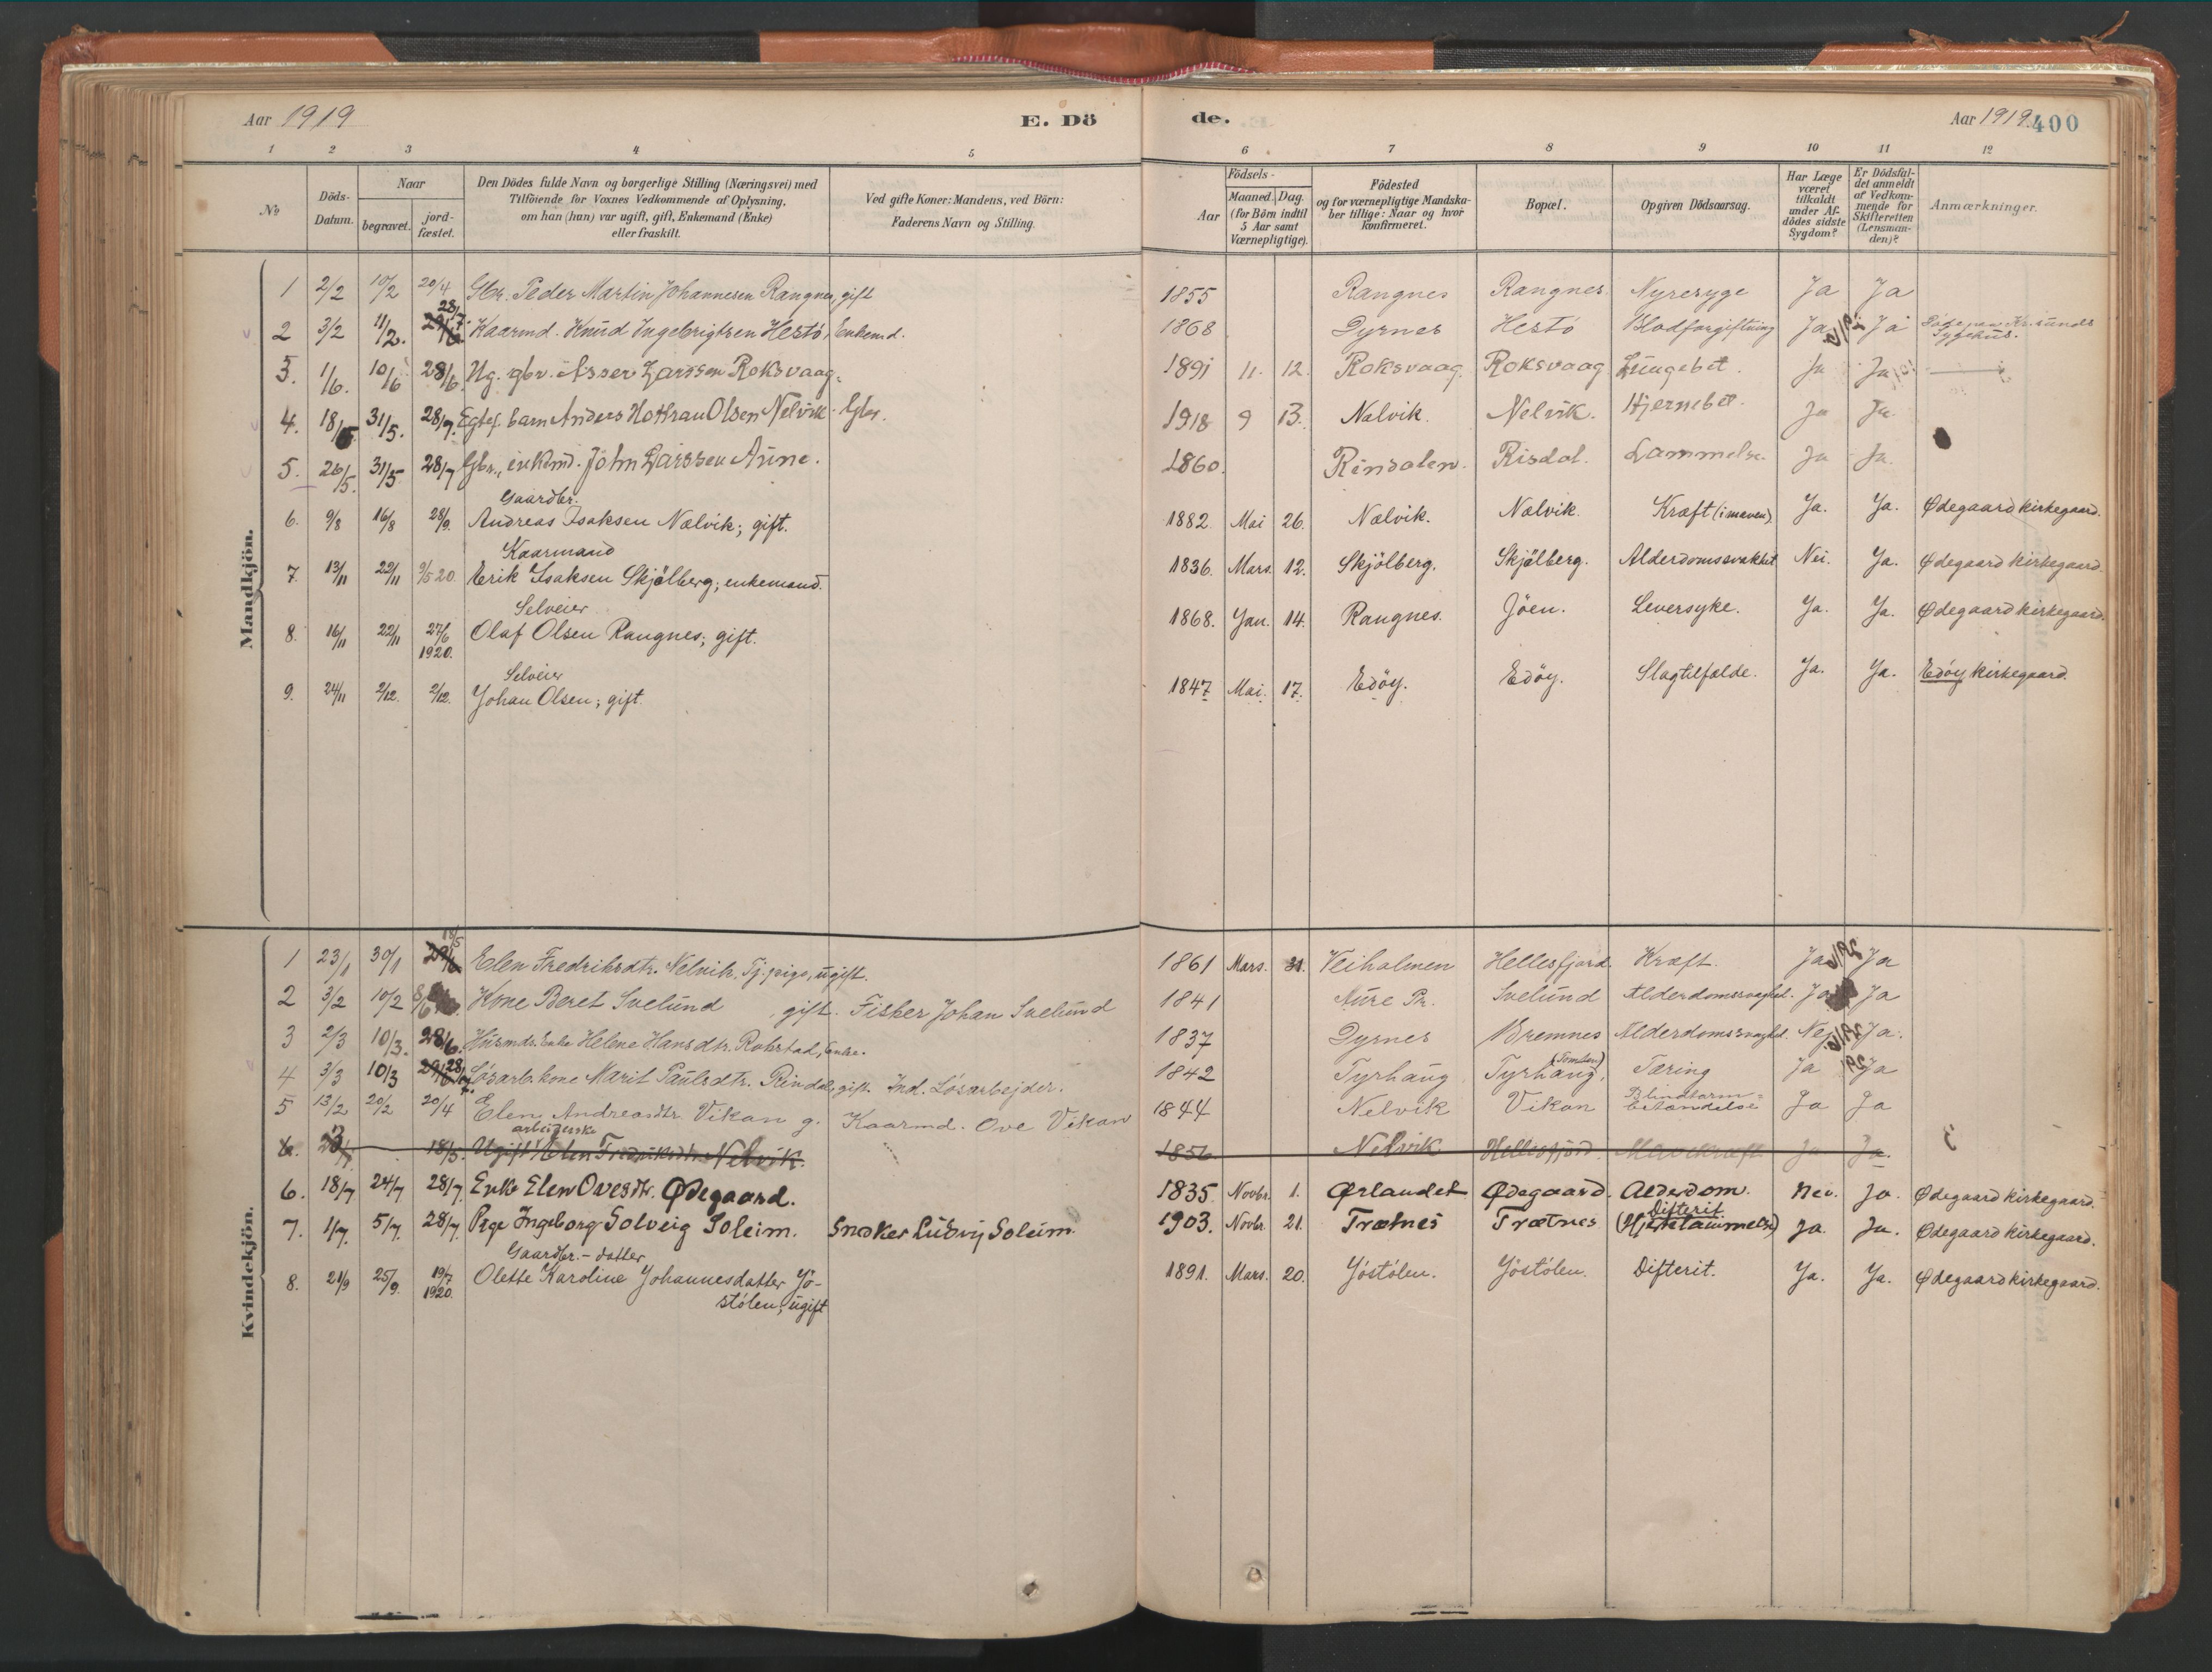 Aar 1919 E. Dö de. Aar 1919. 400
1 2 3 4 5 6 7 8 9 10 11 12
No
Döds-Datum.
Naar
begravet.
jordfæstet.
Den Dödes fulde Navn og borgerlige Stilling (Næringsvei) med
Tilföiende for Voxnes Vedkommende af Oplysning,
om han (hun) var ugift, gift, Enkemand (Enke)
eller fraskilt.
Ved gifte Koner: Mandens, ved Börn:
Faderens Navn og Stilling.
Födsels-
Aar
Maaned. Dag.
(for Börn indtil
5 Aar samt
Værnepligtige).
Födested
og for værnepligtige Mandska-
ber tillige: Naar og hvor
konfirmeret.
Bopæl.
Opgiven Dödsaarsag.
Har Læge
været
tilkaldt
under Af-
dödes sidste
Sygdom?
Er Dödsfal-
det anmeldt
af Vedkom-
mende for
Skifteretten
(Lensman-
den)?
Anmærkninger.
Mandkjön.
1 2/2 10/2 20/4 Gbr. Peder Martin Johannesen Rangnes, gift 1855 Rangnes Rangnes. Nyresyge Ja Ja
28/7
2 3/2 11/2. Kaarmd. Knud Ingebrigtsen Hestö, Enkemd. 1868 Dyrnes Hestö Blodforgiftning Ja Ja Döde paa Kr.sunds Sygehus.
3. 1/6. 10/6 28/6. Ug. gbr. Asser Larssen Roksvaag. 1891 11. 12. Roksvaag. Roksvaag Lungebet. Ja Ja
4. 18/5. 31/5. 28/7. Egtef. barn Anders Hothran Olsen Nelvik Gbr. 1918 9 13. Nalvik. Nelvik. Hjernebet. Ja Ja
5. 26/5. 31/5 28/7 Gbr., enkemd. John Larssen Aune. 1860. Rindalen. Risdal. Lammelse. Ja Ja.
Gaardbr.
6. 9/8 16/8 28/9. Andreas Isaksen Nælvik; gift. 1882. Mai 26. Nælvik. Nælvik. Kræft (i maven). Ja. Ja. Ødegaard kirkegaard.
Kaarmand
7. 13/11 22/11 9/5 20. Erik Isaksen Skjölberg; enkemand. 1836. Mars. 12. Skjölberg. Skjölberg. Alderdomssvakhet Nei. Ja. Ødegaard kirkegaard.
Selveier
8. 16/11 22/11 27/6 1920. Olaf Olsen Rangnes; gift. 1868. Jan. 14. Rangnes. Jöen. Leversyke. Ja. Ja. Ødegaard kirkegaard.
Selveier
9. 24/11 2/12. 2/12. Johan Olsen; gift. 1847 Mai. 17. Edöy. Edöy. Slagtilfælde. Ja. Ja. Edöy kirkegaard.
Kvindekjön.
18/5
1 23/1 30/1 Elen Fredriksdtr. Nelvik. Tj. pige, ugift. 1861 Mars. 31. Veiholmen Hellesfjord. Kræft. Ja Ja
2 3/2 10/2 Kone Beret Svelund gift. Fisker Johan Svelund 1841 Aure Pr. Svelund Alderdomssvaghet. Ja Ja
3 2/3 10/3. 28/6. Husmds. Enke Helene Hansdtr. Rokstad, Enke. 1837 Dyrnes Bremnes Alderdomssvaghet Nej Ja.
4 3/3 10/3 28/7. Lösarb. kone Marit Paulsdtr. Rindal, gift. Ind. Lösarbejder. 1842 Tyrhaug Tyrhaug, (Tomten) Tæring Ja Ja
5 13/2 20/2 20/4 Elen Andreasdtr. Vikan g. Kaarmd. Ove Vikan 1844 Nelvik Vikan Blindtarm= betændelse Ja Ja
arbeiderske
6. 18/5. Ugift Elen Fredriksdtr. Nelvik. 1856 Nelvik Hellesfjord. Mavekræft Ja Ja.
6. 18/7 24/7 28/7. Enke Elen Ovesdtr. Ødegaard. 1835. Novbr. 1. Ørlandet Ødegaard. Alderdom. Nei. Ja. Ødegaard kirkegaard.
Difterit.
7. 1/7. 5/7. 28/7. Pige Ingeborg Solveig Soleim. Snedker Ludvig Soleim. 1903. Novbr. 21. Trætnes Trætnes (Hjertelammelse) Ja. Ja. Ødegaard kirkegaard.
Gaardbr.-datter
8. 21/9 25/9. 19/7 1920. Olette Karoline Johannesdatter Jö-
stölen; ugift 1891. Mars. 20. Jöstölen. Jöstölen. Difterit. Ja. Ja. Ødegaard kirkegaard.